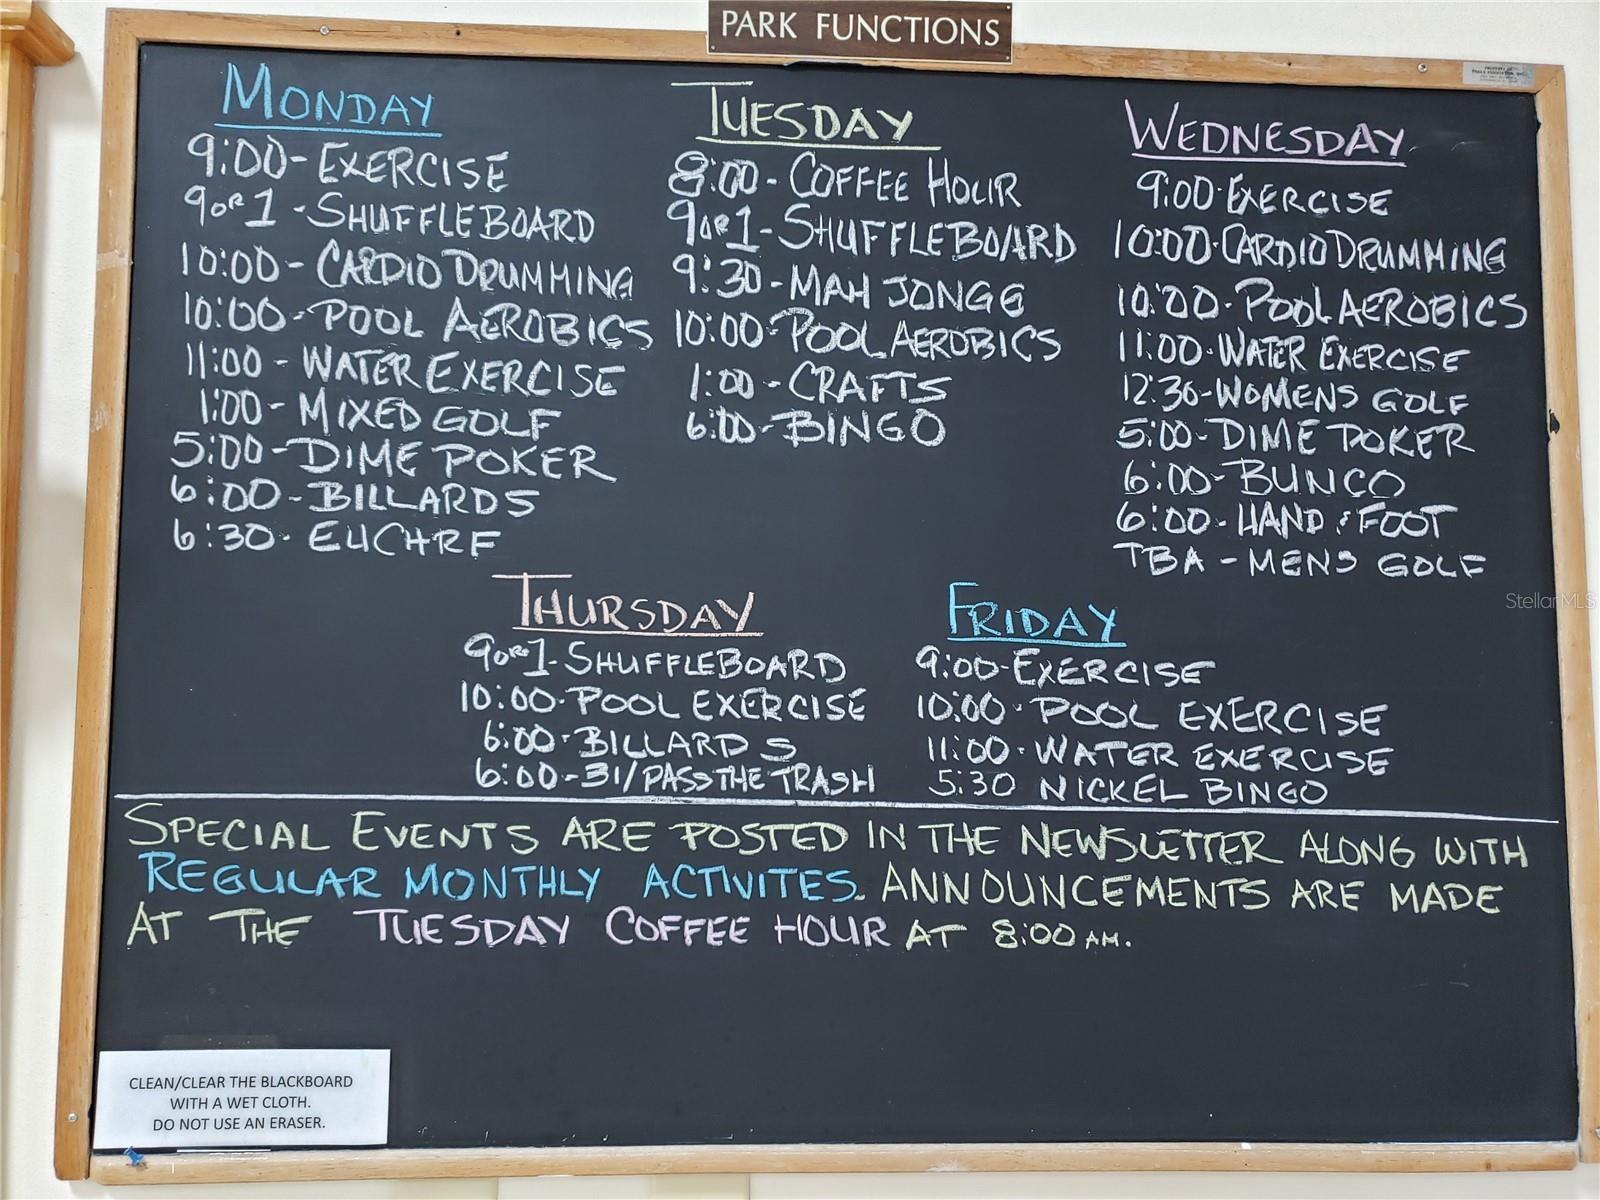 PARK FUNCTIONS
MONDAY
9:00-EXERCISE
9 OR 1 - SHUFFLEBOARD
10:00 - CARDIO DRUMMING
10:00 - POOL AEROBICS
11:00 - WATER EXERCISE
1:00 - MIXED GOLF
5:00 - DIME POKER
6:00 - BILLARDS
6:30 - EUCHRE
TUESDAY
8:00 - COFFEE HOUR
9 OR 1 - SHUFFLEBOARD
9:30 - MAH JONGG
10:00 - POOL AEROBICS
1:00 - CRAFTS
6:00 - BINGO
WEDNESDAY
9:00 - EXERCISE
10:00 - CARDIO DRUMMING
10:00 - POOL AEROBICS
11:00 - WATER EXERCISE
12:30 - WOMENS GOLF
5:00 - DIME POKER
6:00 - BUNCO
6:00 - HAND & FOOT
TBA - MENS GOLF
THURSDAY
9 OR 1 - SHUFFLEBOARD
10:00 - POOL EXERCISE
6:00 - BILLARDS
6:00 - 31/PASS THE TRASH
FRIDAY
9:00 - EXERCISE
10:00 - POOL EXERCISE
11:00 - WATER EXERCISE
5:30 NICKEL BINGO
SPECIAL EVENTS ARE POSTED IN THE NEWSLETTER ALONG WITH
REGULAR MONTHLY ACTIVITES. ANNOUNCEMENTS ARE MADE
AT THE TUESDAY COFFEE HOUR AT 8:00 AM.
CLEAN/CLEAR THE BLACKBOARD
WITH A WET CLOTH.
DO NOT USE AN ERASER.
StellarMLS